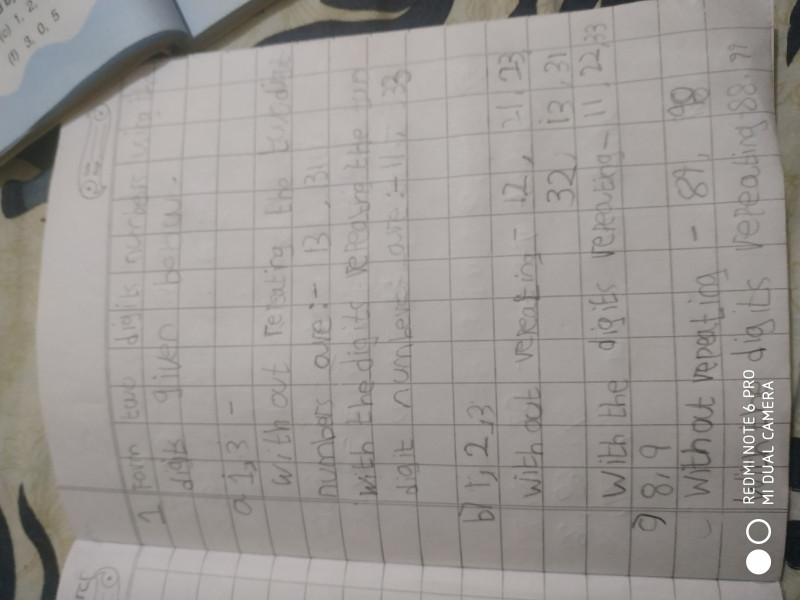 (c) 1, 2,
(f) 3, 0, 5
1 Form two digits numbers
digits given below.
a 1,3 -
With out repeating the two digit
numbers are:- 13, 31
With the digits repeating the two
digit numbers are:- 11, 33
b) 1, 2, 3
without repeating - 12, 21, 23
32, 13, 31
With the digits repeating - 11, 22, 33
c) 8, 9
Without repeating - 89, 98
digits repeating 88, 99
REDMI NOTE 6 PRO
MI DUAL CAMERA